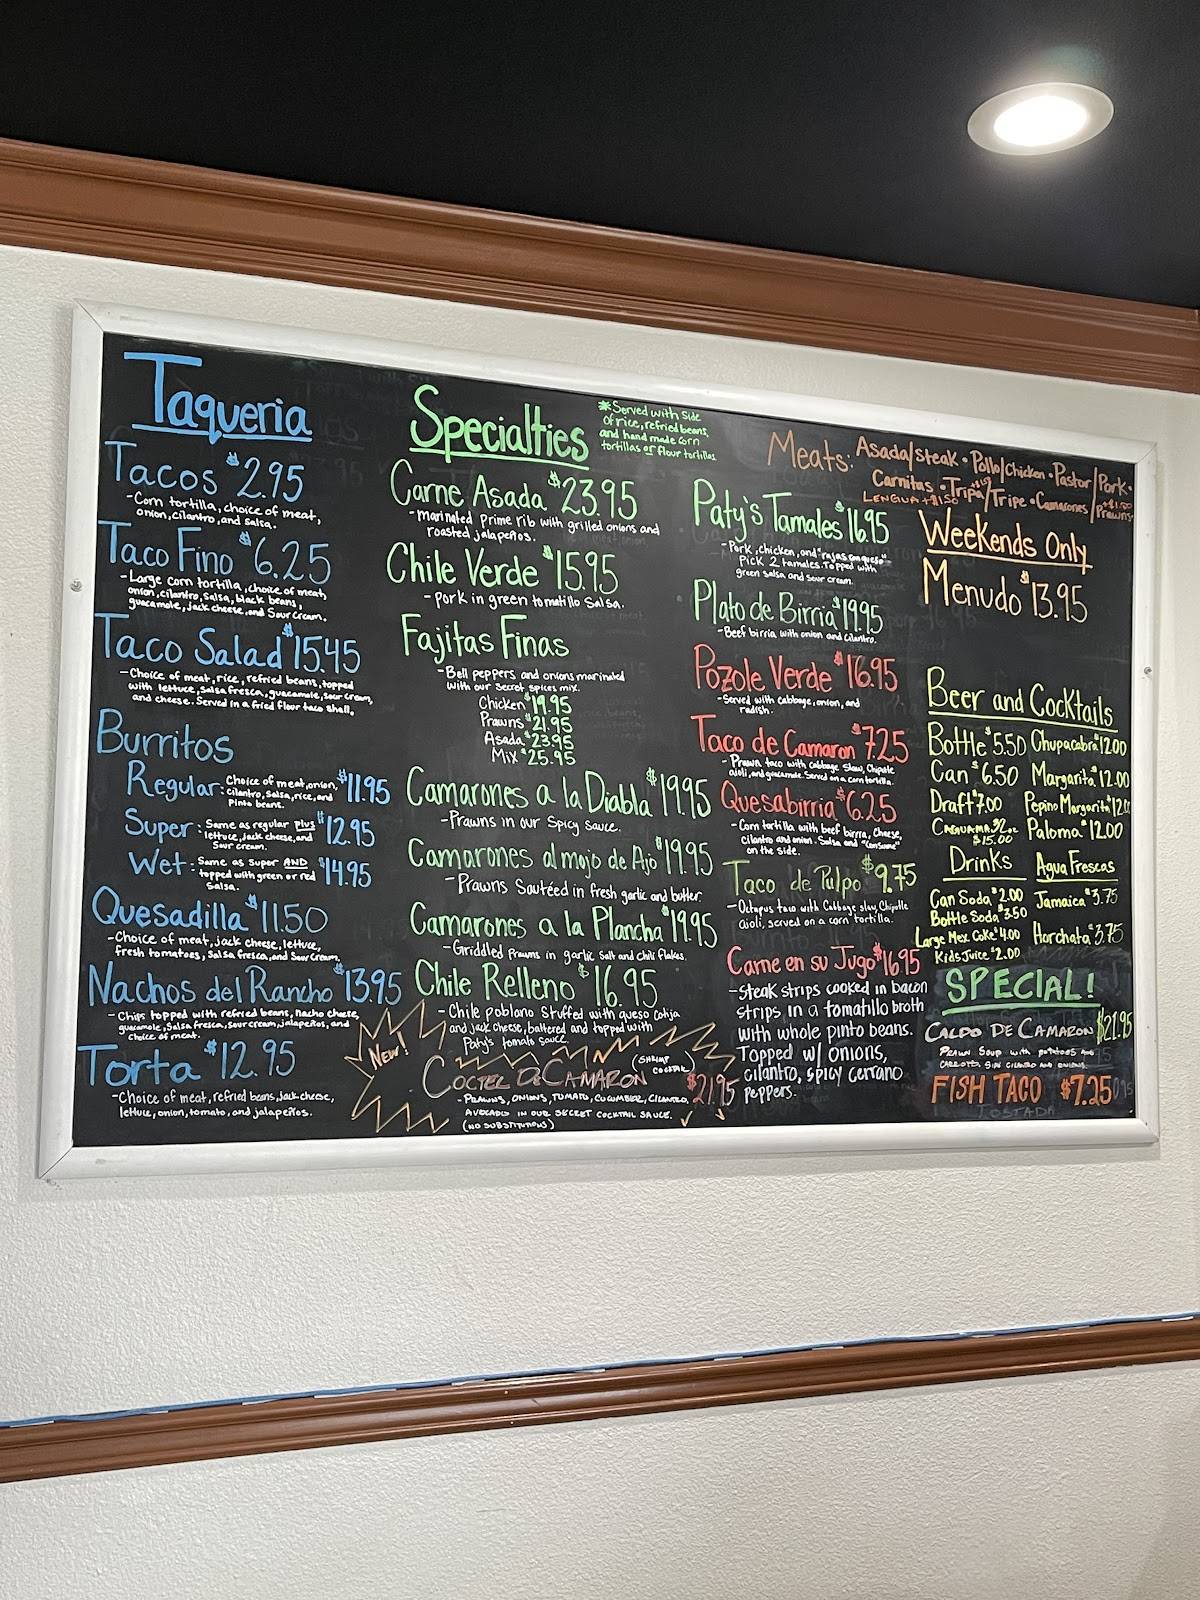 Taqueria
Tacos $2.95
-Corn tortilla, choice of meat,
onion, cilantro, and salsa.
Taco Fino $6.25
-Large corn tortilla, choice of meat,
onion, cilantro, salsa, black beans,
guacamole, jack cheese, and sour cream.
Taco Salad $15.45
-Choice of meat, rice, refried beans, topped
with lettuce, salsa fresca, guacamole, sour cream,
and cheese. Served in a fried flour taco shell.
Burritos
Regular: Choice of meat, onion, $11.95
cilantro, salsa, rice, and
pinto beans.
Super: Same as regular plus $12.95
lettuce, jack cheese, and
sour cream.
Wet: Same as super AND $14.95
topped with green or red
salsa.
Quesadilla $11.50
-Choice of meat, jack cheese, lettuce,
fresh tomatoes, salsa fresca, and sour cream.
Nachos del Rancho $13.95
-Chips topped with refried beans, nacho cheese,
guacamole, salsa fresca, sour cream, jalapeños, and
choice of meat.
Torta $12.95
-Choice of meat, refried beans, jack cheese,
lettuce, onion, tomato, and jalapeños.
Specialties
*Served with side
of rice, refried beans,
and hand made corn
tortillas or flour tortillas
Carne Asada $23.95
-marinated prime rib with grilled onions and
roasted jalapeños.
Chile Verde $15.95
-pork in green tomatillo salsa.
Fajitas Finas
-Bell peppers and onions marinated
with our secret spices mix.
Chicken $19.95
Prawns $21.95
Asada $23.95
Mix $25.95
Camarones a la Diabla $19.95
-Prawns in our spicy sauce.
Camarones al mojo de Ajo $19.95
-Prawns sautéed in fresh garlic and butter.
Camarones a la Plancha $19.95
-Griddled prawns in garlic salt and chili flakes.
Chile Relleno $16.95
-Chile poblano stuffed with queso cotija
and jack cheese, battered and topped with
Paty's tomato sauce.
New!
Coctel De Camaron (Shrimp
cocktail) $21.95
-Prawns, onions, tomato, cucumber, cilantro,
avocado in our secret cocktail sauce.
(no substitutions)
Meats: Asada/steak • Pollo/chicken • Pastor/Pork •
Carnitas • Tripa/Tripe • Camarones/Prawns
Lengua +$1.50
Paty's Tamales $16.95
-Pork, chicken, and "rajas con queso"
Pick 2 tamales. Topped with
green salsa and sour cream.
Plato de Birria $19.95
-Beef birria with onion and cilantro.
Pozole Verde $16.95
-Served with cabbage, onion, and
radish.
Taco de Camaron $7.25
-Prawn taco with cabbage slaw, chipotle
aioli, and guacamole. Served on a corn tortilla.
Quesabirria $6.25
-Corn tortilla with beef birria, cheese,
cilantro and onion. Salsa and "consume"
on the side.
Taco de Pulpo $9.75
-Octopus taco with cabbage slaw, chipotle
aioli, served on a corn tortilla.
Carne en su Jugo $16.95
-steak strips cooked in bacon
strips in a tomatillo broth
with whole pinto beans.
Topped w/ onions,
cilantro, spicy serrano
peppers.
Weekends Only
Menudo $13.95
Beer and Cocktails
Bottle $5.50 Chupacabra $12.00
Can $6.50 Margarita $12.00
Draft $7.00 Pepino Margarita $12.00
Caguama 32oz $15.00 Paloma $12.00
Drinks
Can Soda $2.00
Bottle Soda $3.50
Large Mex. Coke $4.00
Kids Juice $2.00
Agua Frescas
Jamaica $3.75
Horchata $3.75
SPECIAL!
Caldo De Camaron $21.95
Prawn soup with potatoes and
carrots. Side cilantro and onions.
FISH TACO $7.25
Tostada